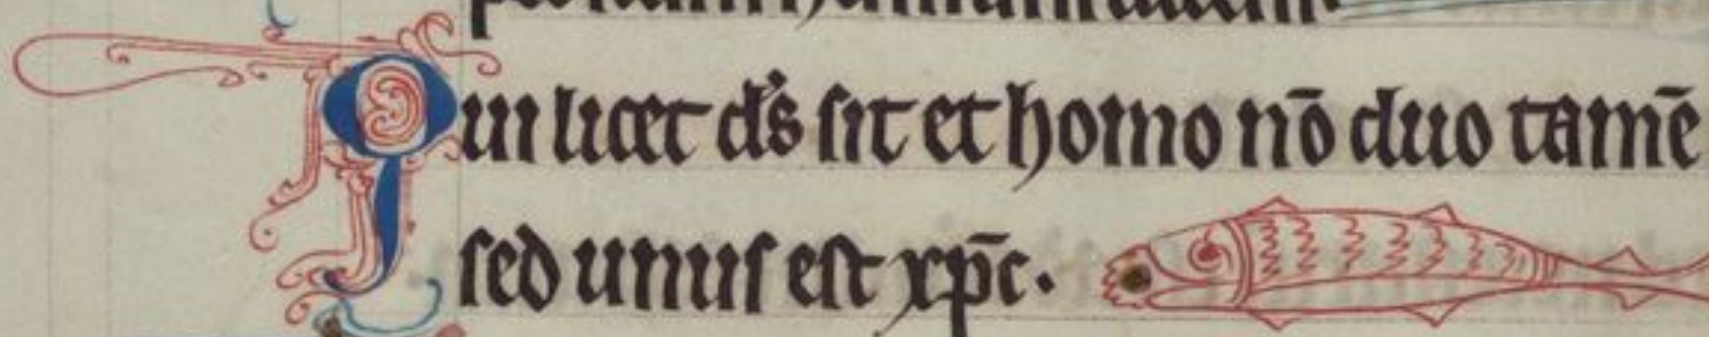 Qui licet ds̄ sit et homo nō duo tamē
sed unus est xp̄c.